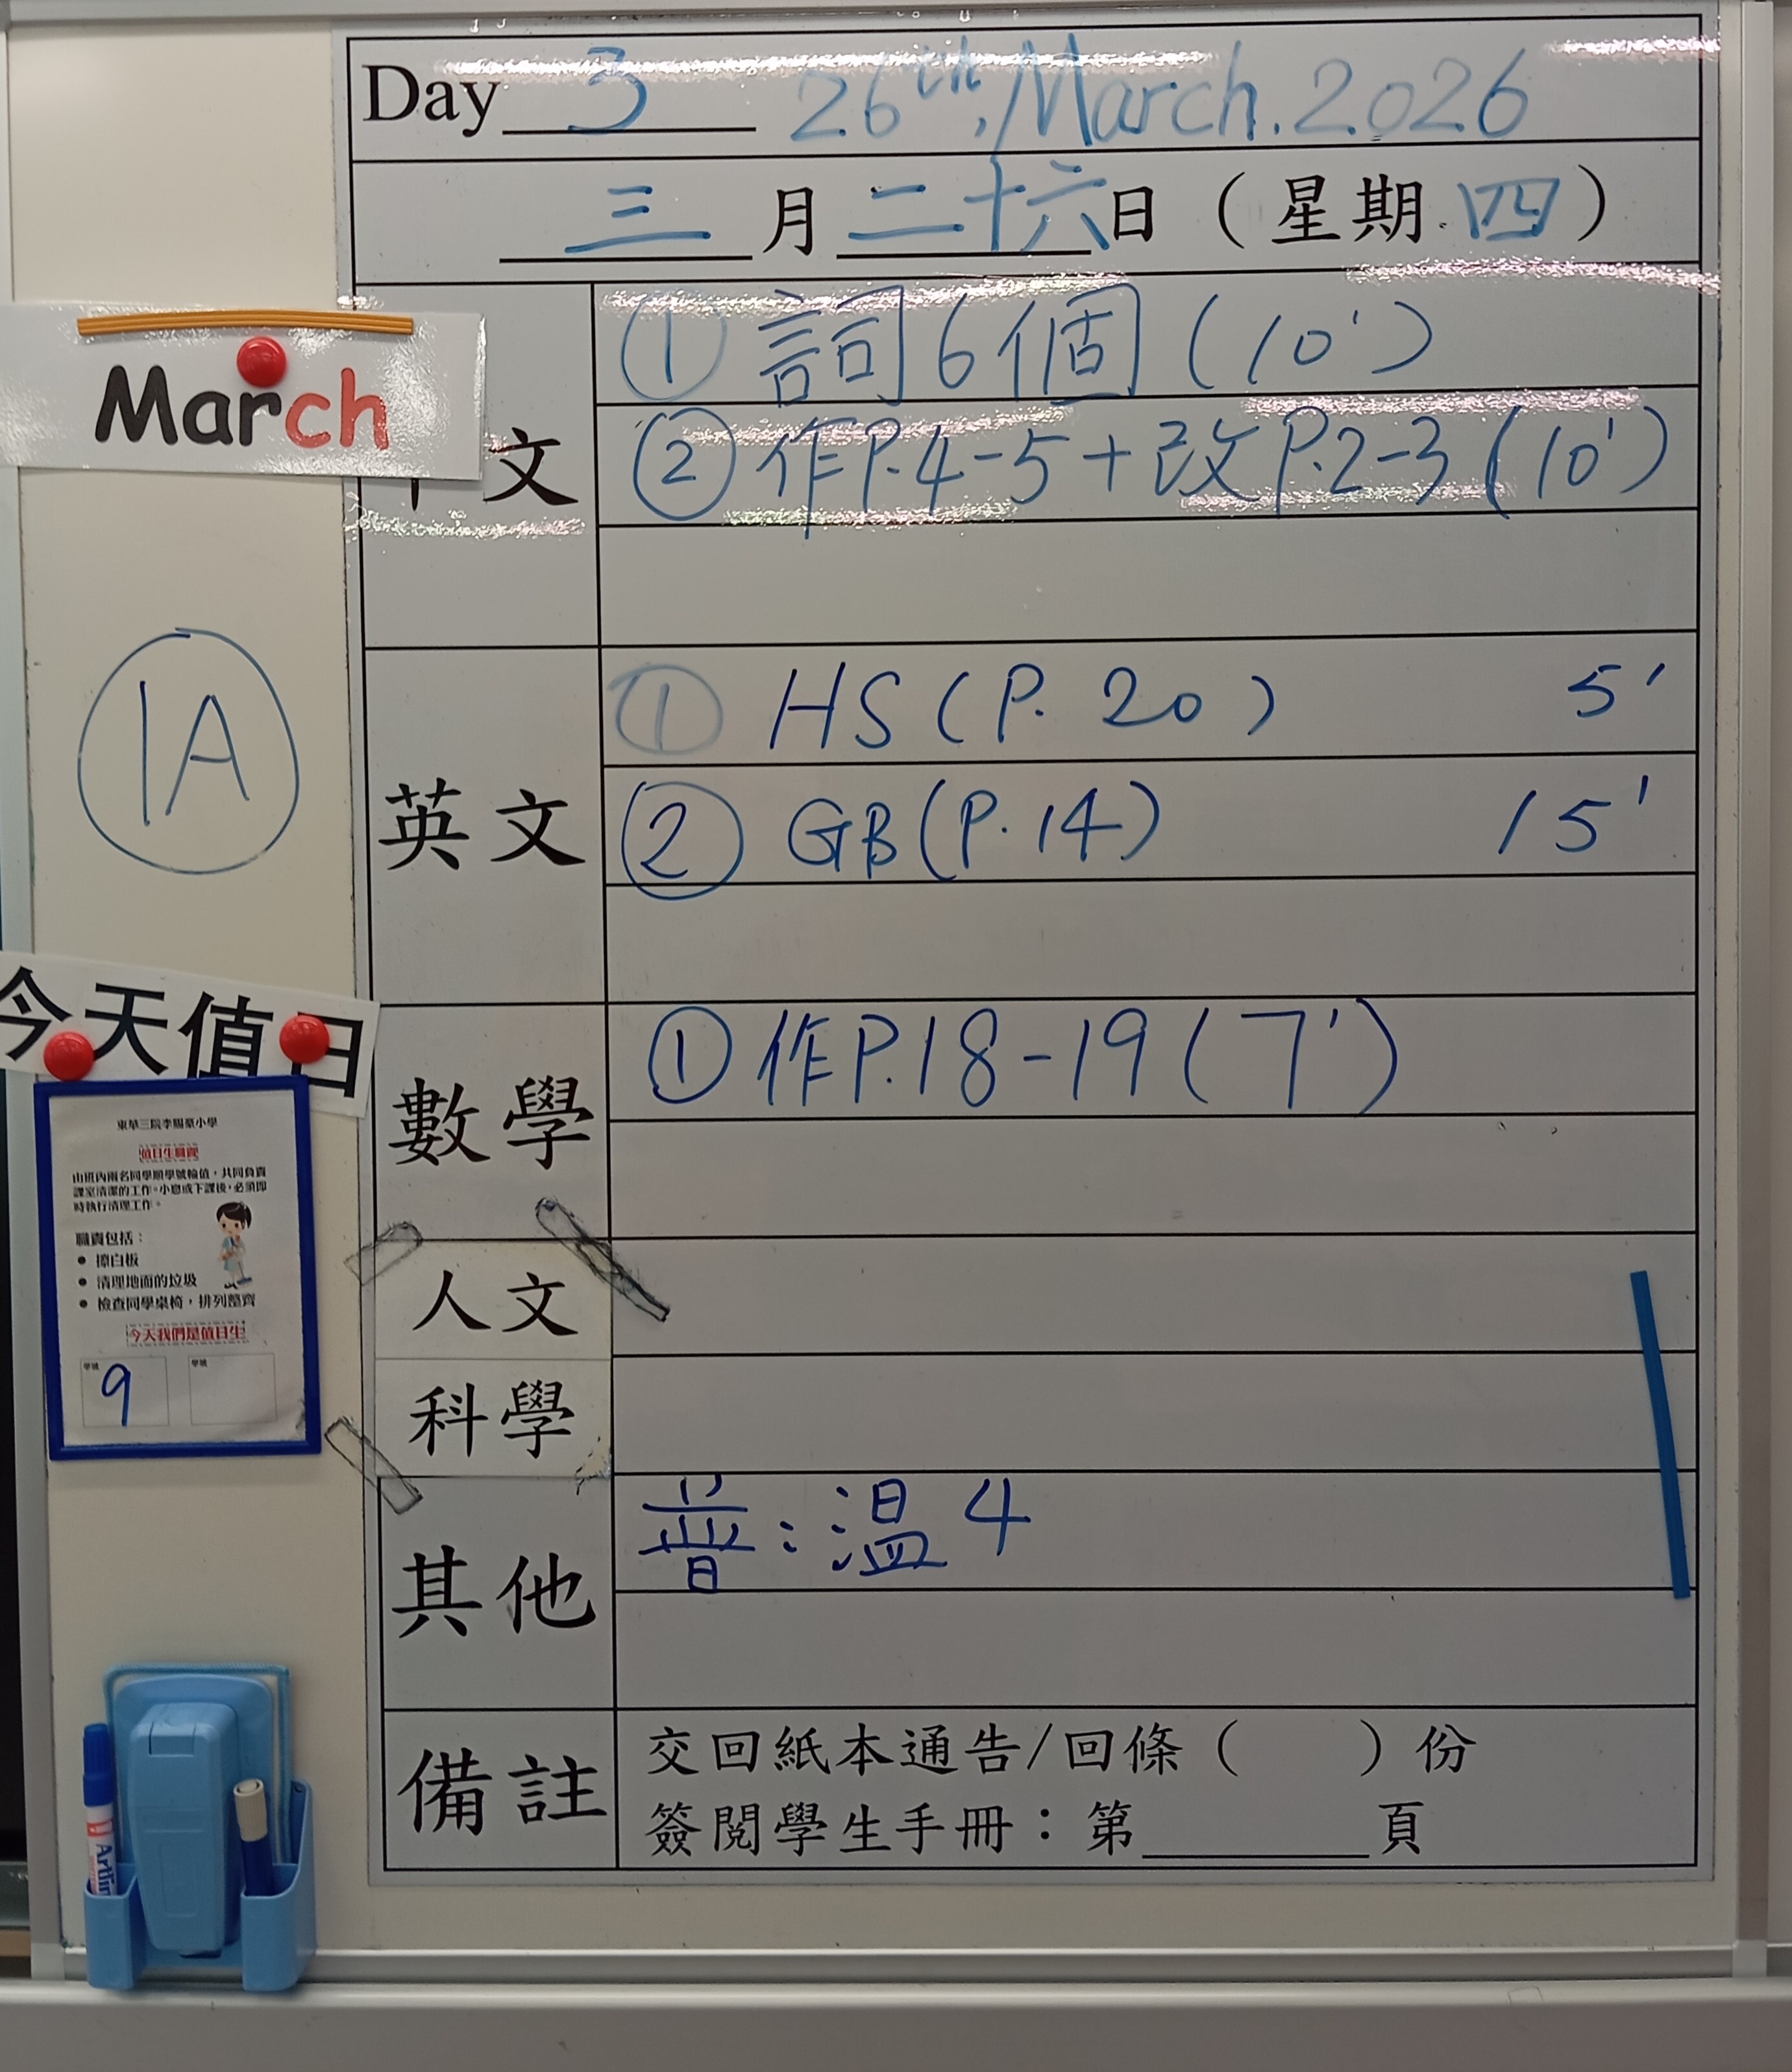 Day 3 26th, March. 2026
三 月 二十六 日 ( 星期 四 )
March
文
① 詞6個 (10')
② 作P.4-5+改P.2-3 (10')
1A
英文
① HS (P. 20) 5'
② GB (P.14) 15'
數學
① 作P.18-19 (7')
人文
科學
其他
普：温4
備註
交回紙本通告/回條 ( ) 份
簽閱學生手冊：第 頁
今天值日
東華三院李賜豪小學
值日生職責
由班內兩名同學順學號輪值，共同負責
課室清潔的工作。小息或下課後，必須即
時執行清理工作。
職責包括：
• 擦白板
• 清理地面的垃圾
• 檢查同學桌椅，排列整齊
今天我們是值日生
學號 9 學號
Artline